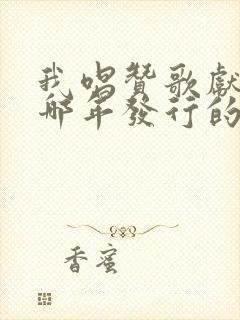 我唱贊歌獻
哪年發行的
香蜜